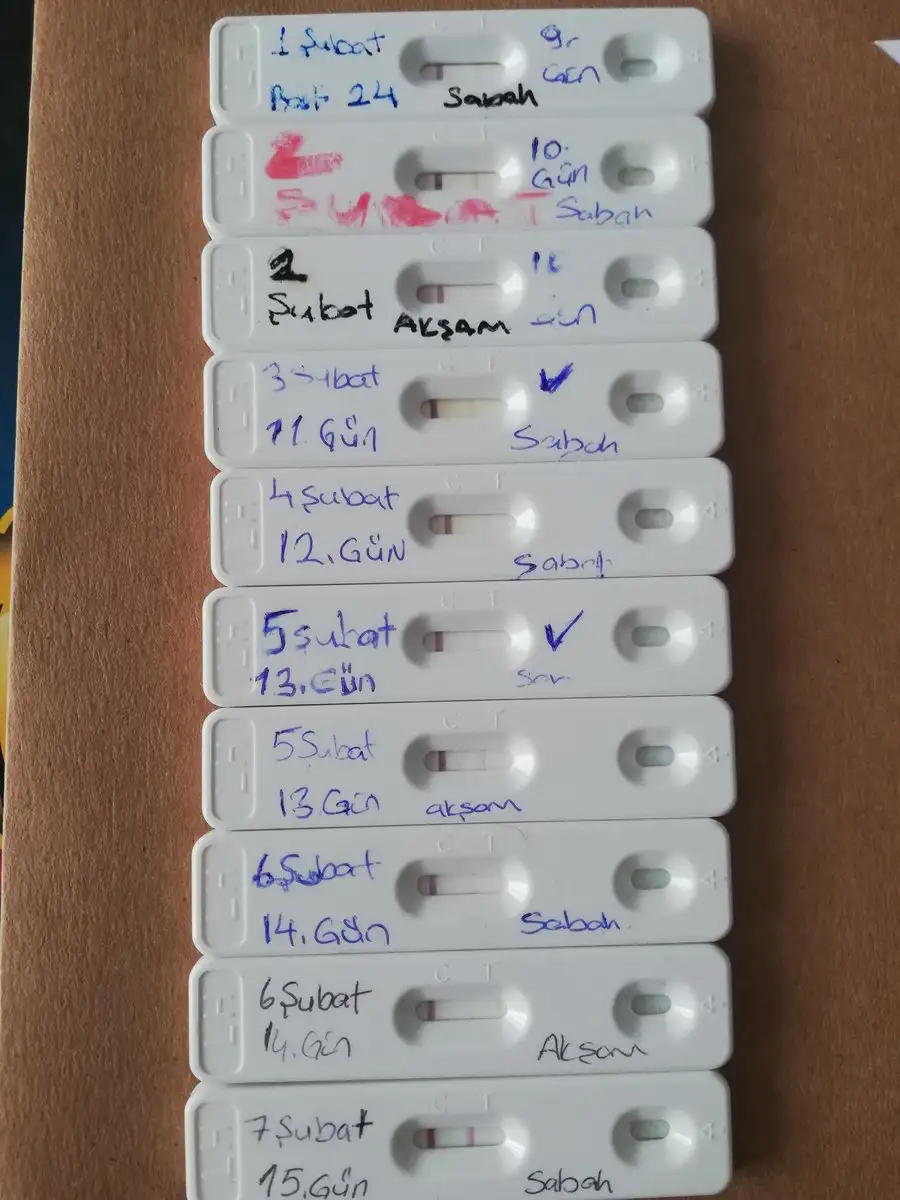 1 Şubat
9.
Gün
Beat 24
Sabah
2
10.
Gün
Şubat
Sabah
2
Şubat
Akşam
Gün
3 Şubat
11. Gün
Sabah
C T
4 Şubat
12. GüN
Sabah
C T
5 Şubat
13. Gün
C T
5 Şubat
13. Gün
akşam
6 Şubat
14. Gün
Sabah
C T
6 Şubat
14. Gün
Akşam
C T
7 Şubat
15. Gün
Sabah